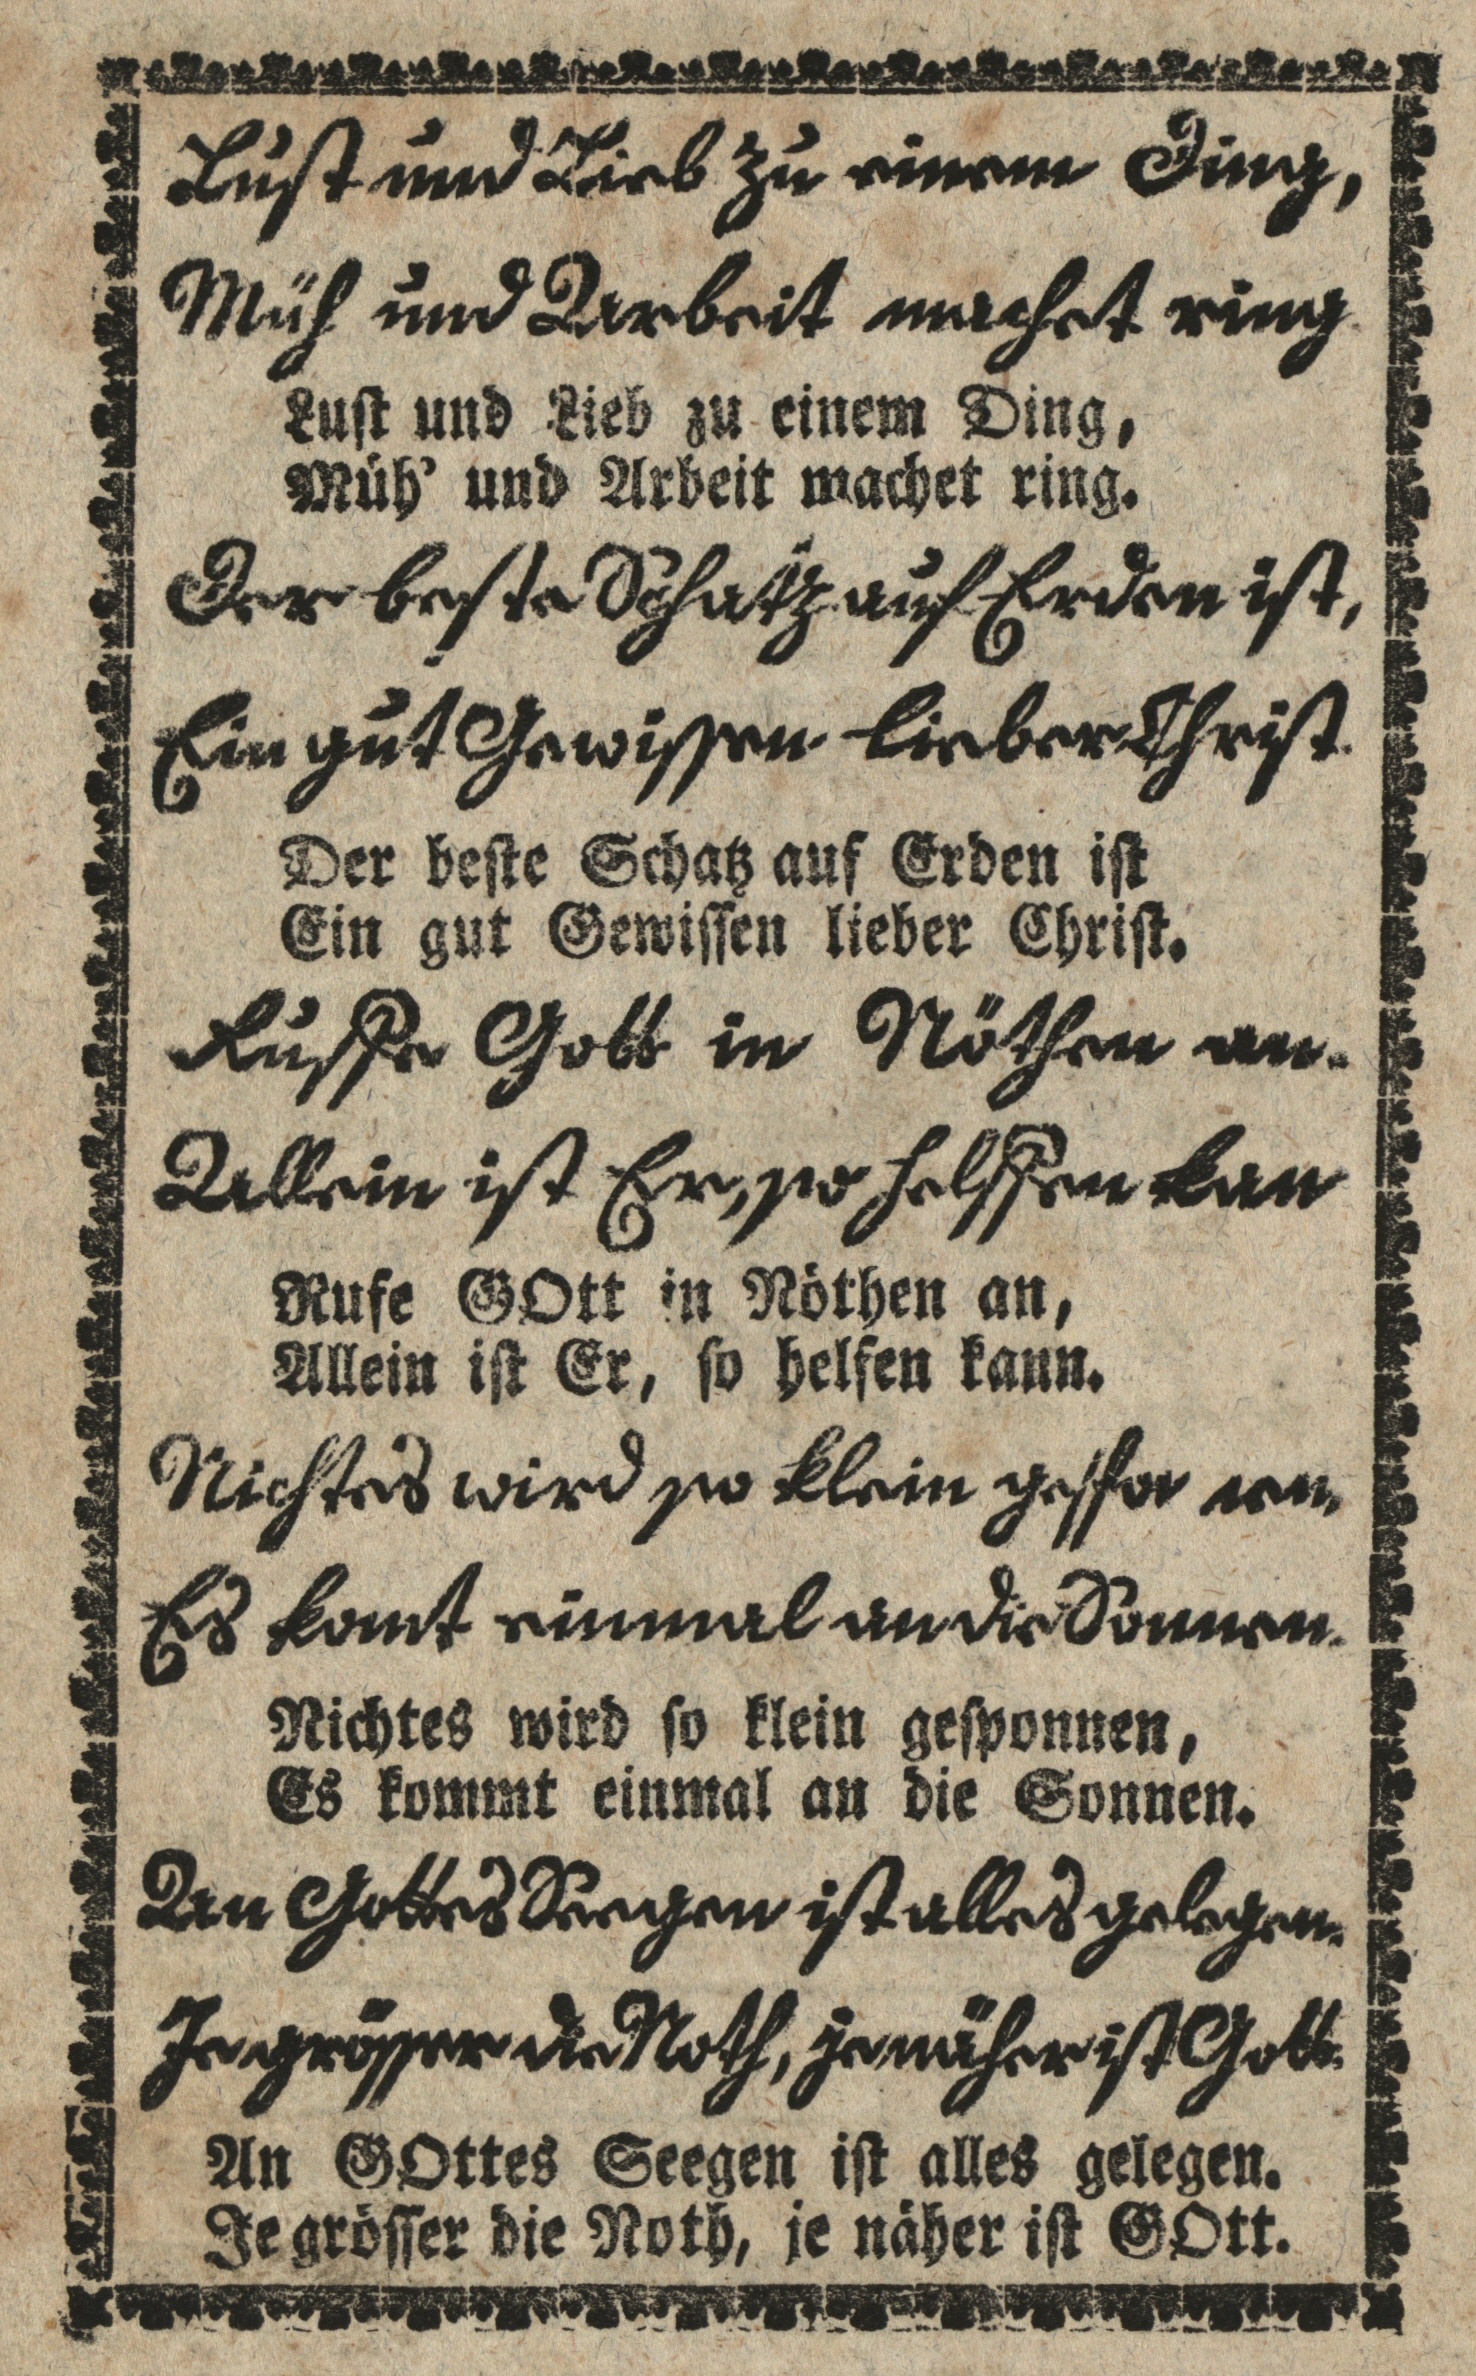 Lust und Lieb zu einem Ding,
Müh und Arbeit machet ring
Lust und Lieb zu einem Ding,
Müh' und Arbeit machet ring.
Der beste Schatz auf Erden ist,
Ein gut Gewissen lieber Christ.
Der beste Schatz auf Erden ist
Ein gut Gewissen lieber Christ.
Ruffe Gott in Nöthen an.
Allein ist Er, so helffen kan
Rufe GOtt in Nöthen an,
Allein ist Er, so helfen kann.
Nichtes wird so klein
Es komt einmal an die Sonnen.
Nichtes wird so klein gesponnen,
Es kommt einmal an die Sonnen.
An Gottes Seegen ist alles gelegen.
Je grösser die Noth, je näher ist Gott.
An GOttes Seegen ist alles gelegen.
Je grösser die Noth, je näher ist GOtt.